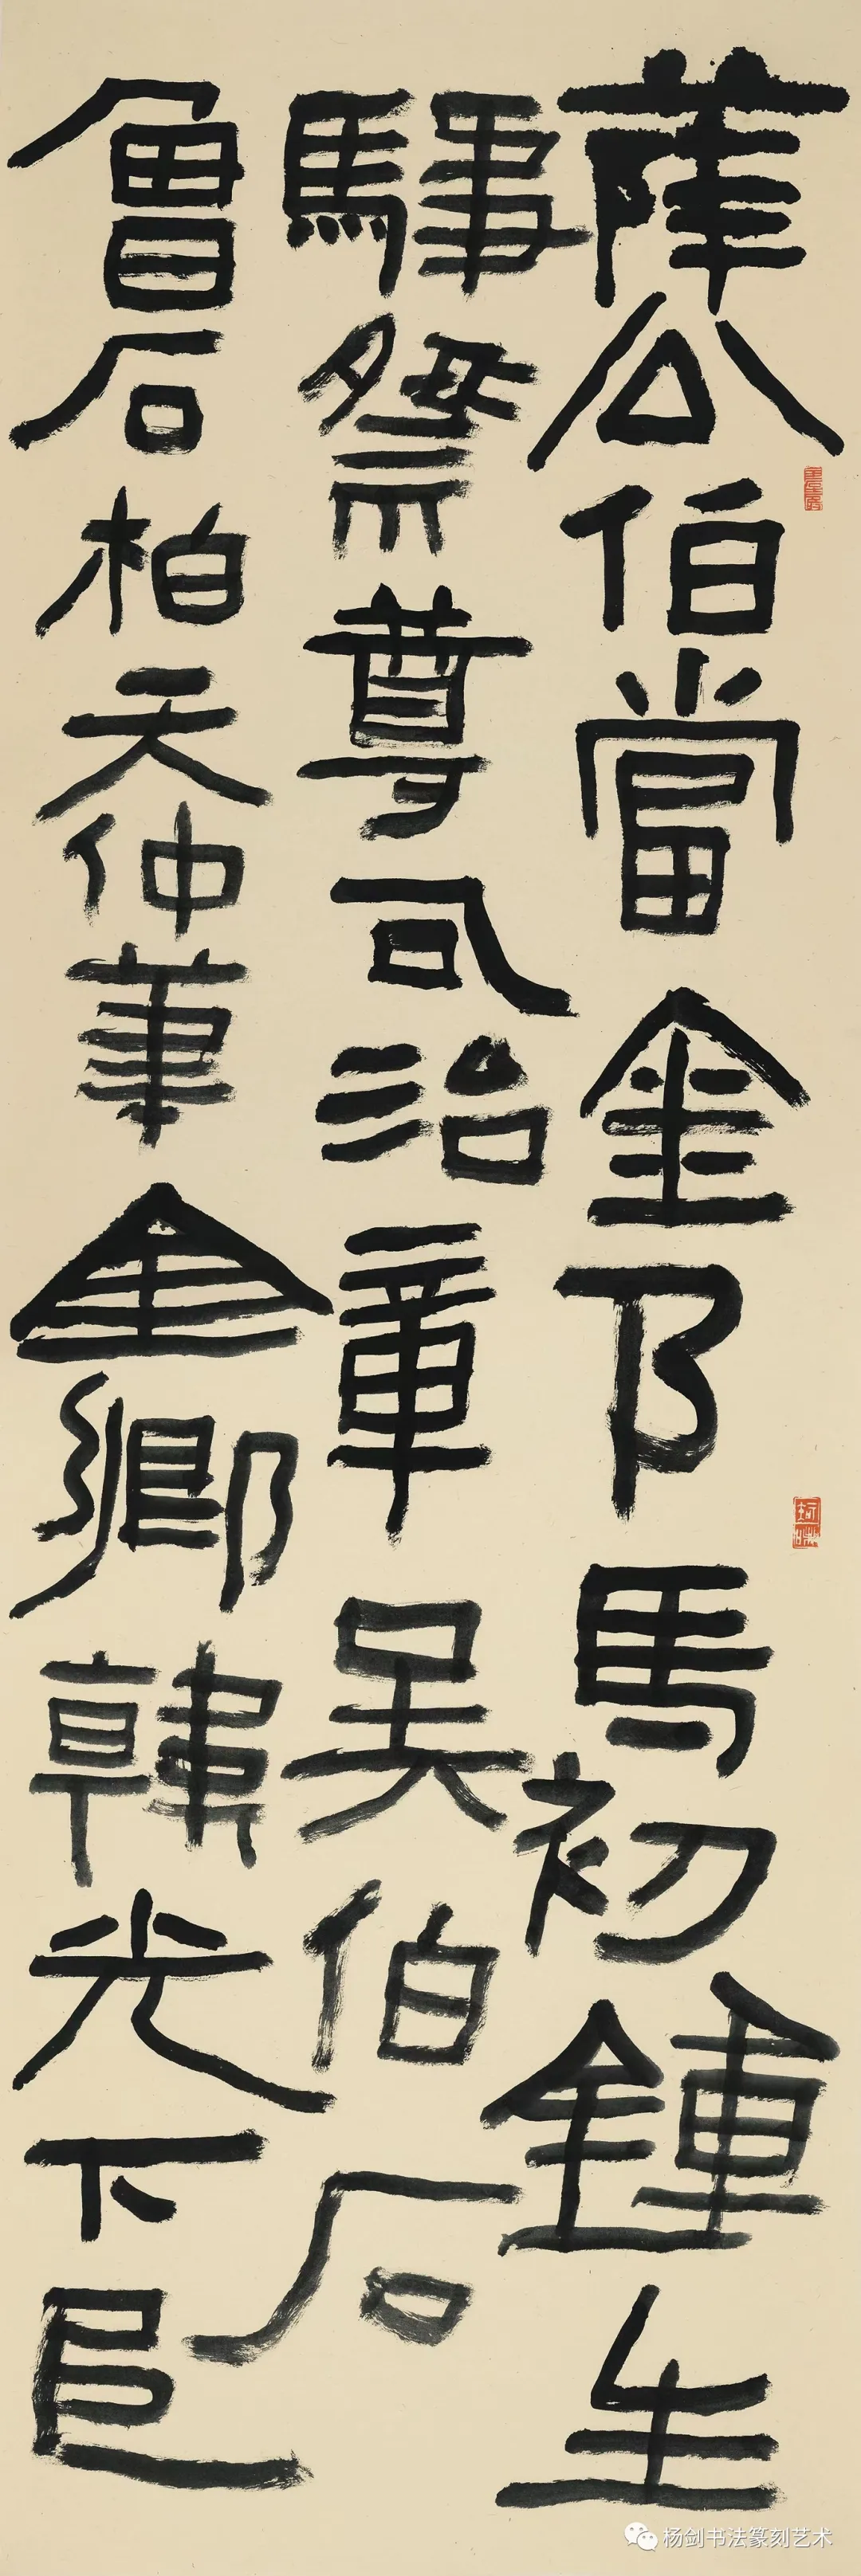 薛公伯當金乃馬初鍾生
驛祭尊司治章吳伯石
會石柏天仲華金卿韓光下邑
杨剑书法篆刻艺术